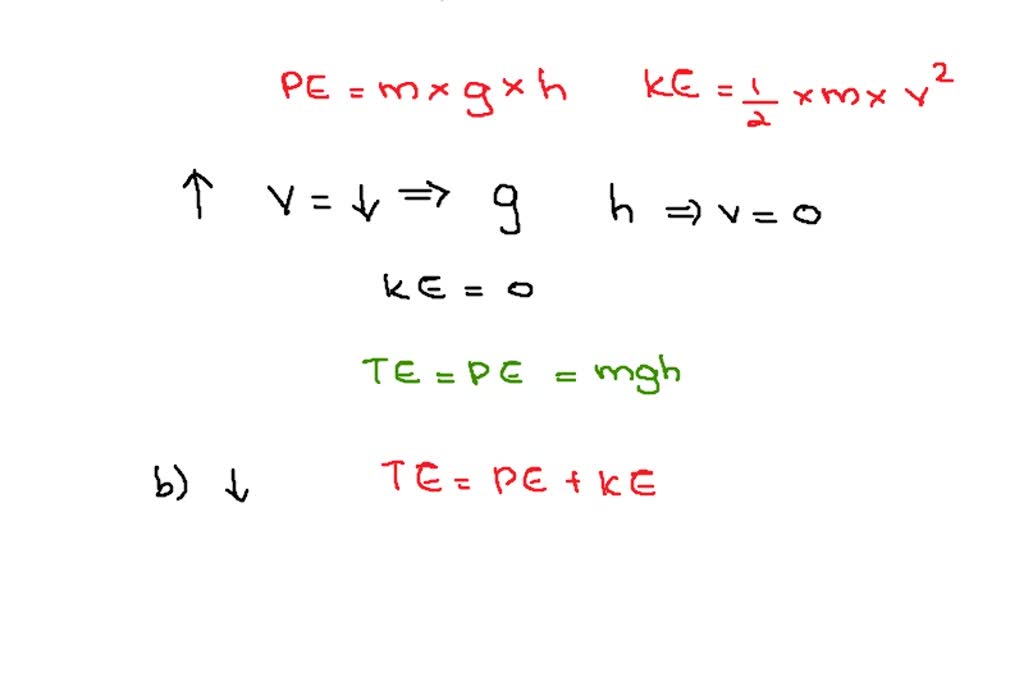 PE = m × g × h KE = 1/2 × m × v²
↑ V = ↓ ⇒ g h ⇒ v = 0
KE = 0
TE = PE = mgh
b) ↓ TE = PE + KE